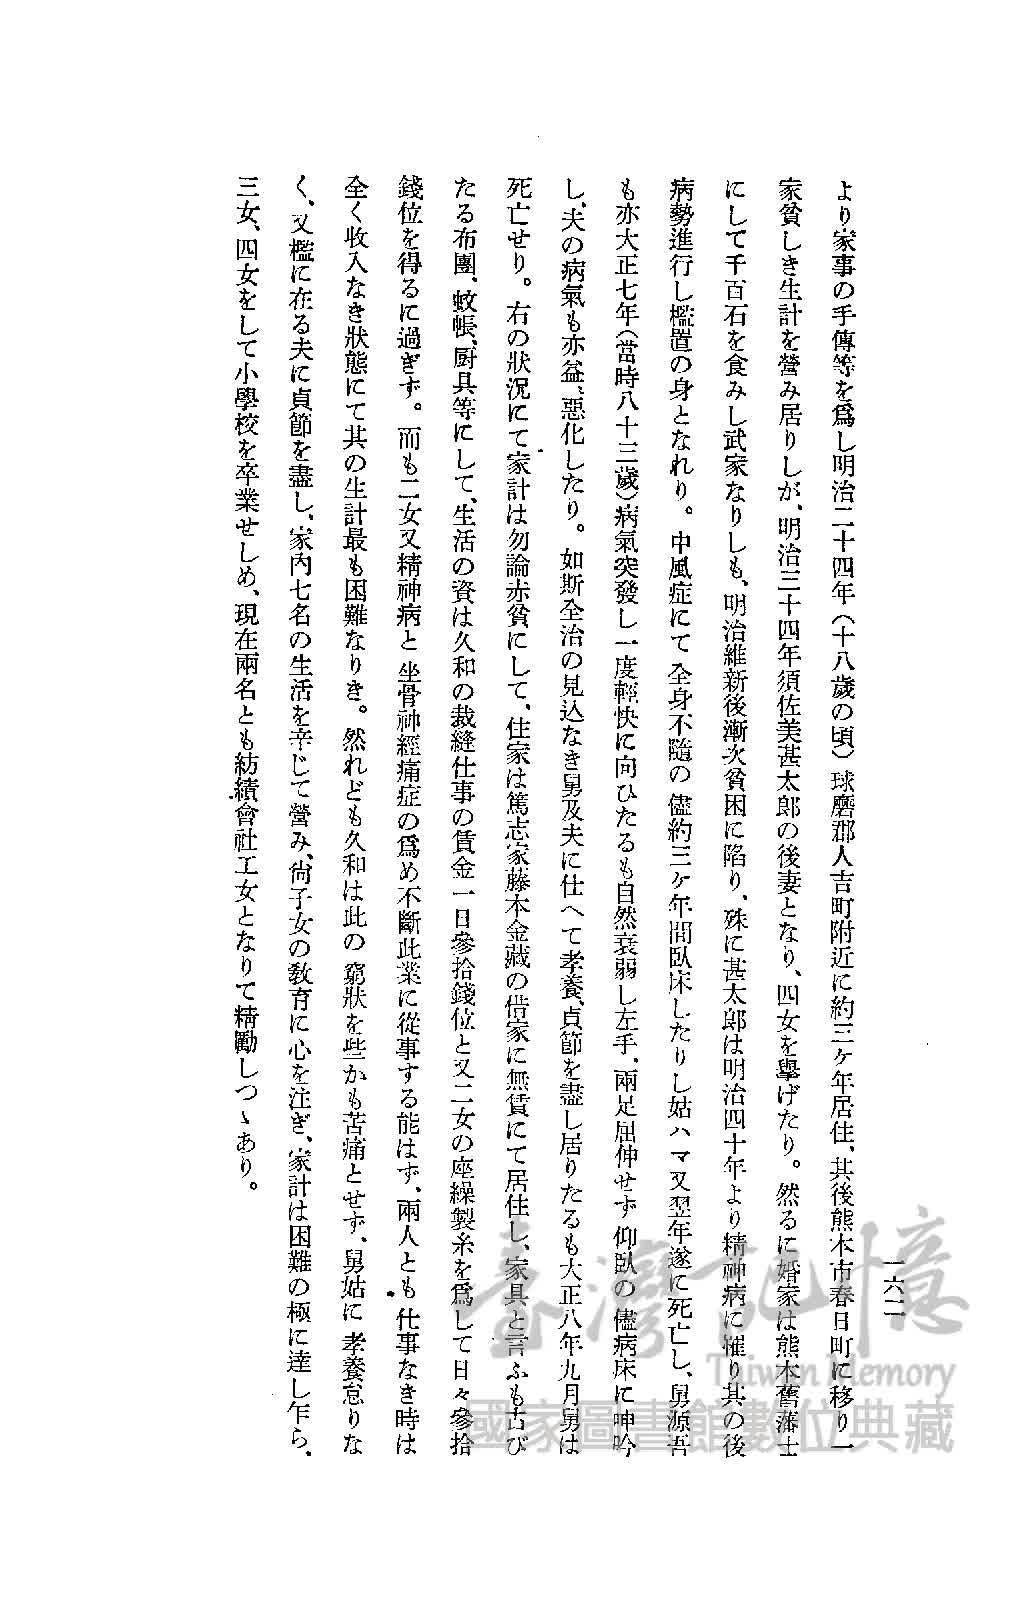 一六二
より家事の手傳等を爲し明治二十四年（十八歲の頃）球磨郡人吉町附近に約三ヶ年居住、其後熊本市春日町に移り一
家貧しき生計を營み居りしが、明治三十四年須佐美甚太郎の後妻となり、四女を擧げたり。然るに婚家は熊本舊藩士
にして千百石を食みし武家なりしも、明治維新後漸次貧困に陷り、殊に甚太郎は明治四十年より精神病に罹り其の後
病勢進行し檻置の身となれり。中風症にて全身不隨の儘約三ヶ年間臥床したりし姑ハマ又翌年遂に死亡し、舅源吾
も亦大正七年（當時八十三歲）病氣突發し一度輕快に向ひたるも自然衰弱し左手、兩足屈伸せず仰臥の儘病床に呻吟
し、夫の病氣も亦益〻惡化したり。如斯全治の見込なき舅及夫に仕へて孝養、貞節を盡し居りたるも大正八年九月舅は
死亡せり。右の狀況にて家計は勿論赤貧にして、住家は篤志家藤本金藏の借家に無賃にて居住し、家具と言ふも古び
たる布團、蚊帳、厨具等にして、生活の資は久和の裁縫仕事の賃金一日參拾錢位と又二女の座繰製糸を爲して日々參拾
錢位を得るに過ぎず。而も二女又精神病と坐骨神經痛症の爲め不斷此業に從事する能はず、兩人とも仕事なき時は
全く收入なき狀態にて其の生計最も困難なりき。然れども久和は此の窮狀を些かも苦痛とせず、舅姑に孝養怠りな
く、又檻に在る夫に貞節を盡し、家內七名の生活を辛じて營み、尙子女の敎育に心を注ぎ、家計は困難の極に達し乍ら、
三女、四女をして小學校を卒業せしめ、現在兩名とも紡績會社工女となりて精勵しつゝあり。
臺灣記憶
Taiwan Memory
國家圖書館數位典藏